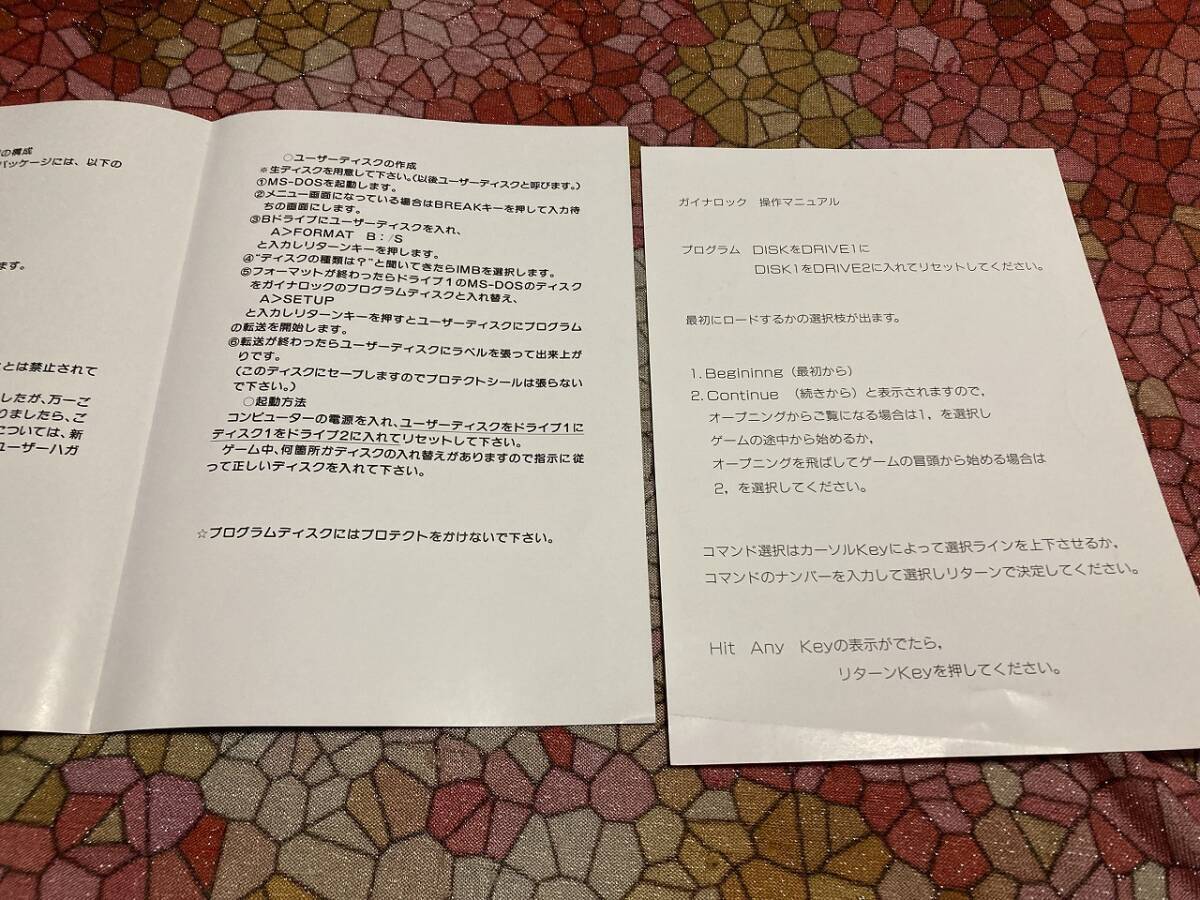 の構成
パッケージには、以下の
ます。
ことは禁止されて
したが、万一ご
りましたら、ご
については、新
ユーザーハガ
○ユーザーディスクの作成
※生ディスクを用意して下さい。(以後ユーザーディスクと呼びます。)
①MS-DOSを起動します。
②メニュー画面になっている場合はBREAKキーを押して入力待
ちの画面にします。
③Bドライブにユーザーディスクを入れ、
A>FORMAT B:/S
と入力しリターンキーを押します。
④“ディスクの種類は?”と聞いてきたら1MBを選択します。
⑤フォーマットが終わったらドライブ1のMS-DOSのディスク
をガイナロックのプログラムディスクと入れ替え、
A>SETUP
と入力しリターンキーを押すとユーザーディスクにプログラム
の転送を開始します。
⑥転送が終わったらユーザーディスクにラベルを張って出来上が
りです。
(このディスクにセーブしますのでプロテクトシールは張らない
で下さい。)
○起動方法
コンピューターの電源を入れ、ユーザーディスクをドライブ1に
ディスク1をドライブ2に入れてリセットして下さい。
ゲーム中、何箇所かディスクの入れ替えがありますので指示に従
って正しいディスクを入れて下さい。
☆プログラムディスクにはプロテクトをかけないで下さい。
ガイナロック 操作マニュアル
プログラム DISKをDRIVE1に
DISK1をDRIVE2に入れてリセットしてください。
最初にロードするかの選択枝が出ます。
1. Begininng (最初から)
2. Continue (続きから) と表示されますので、
オープニングからご覧になる場合は1, を選択し
ゲームの途中から始めるか,
オープニングを飛ばしてゲームの冒頭から始める場合は
2, を選択してください。
コマンド選択はカーソルKeyによって選択ラインを上下させるか,
コマンドのナンバーを入力して選択しリターンで決定してください。
Hit Any Keyの表示がでたら,
リターンKeyを押してください。